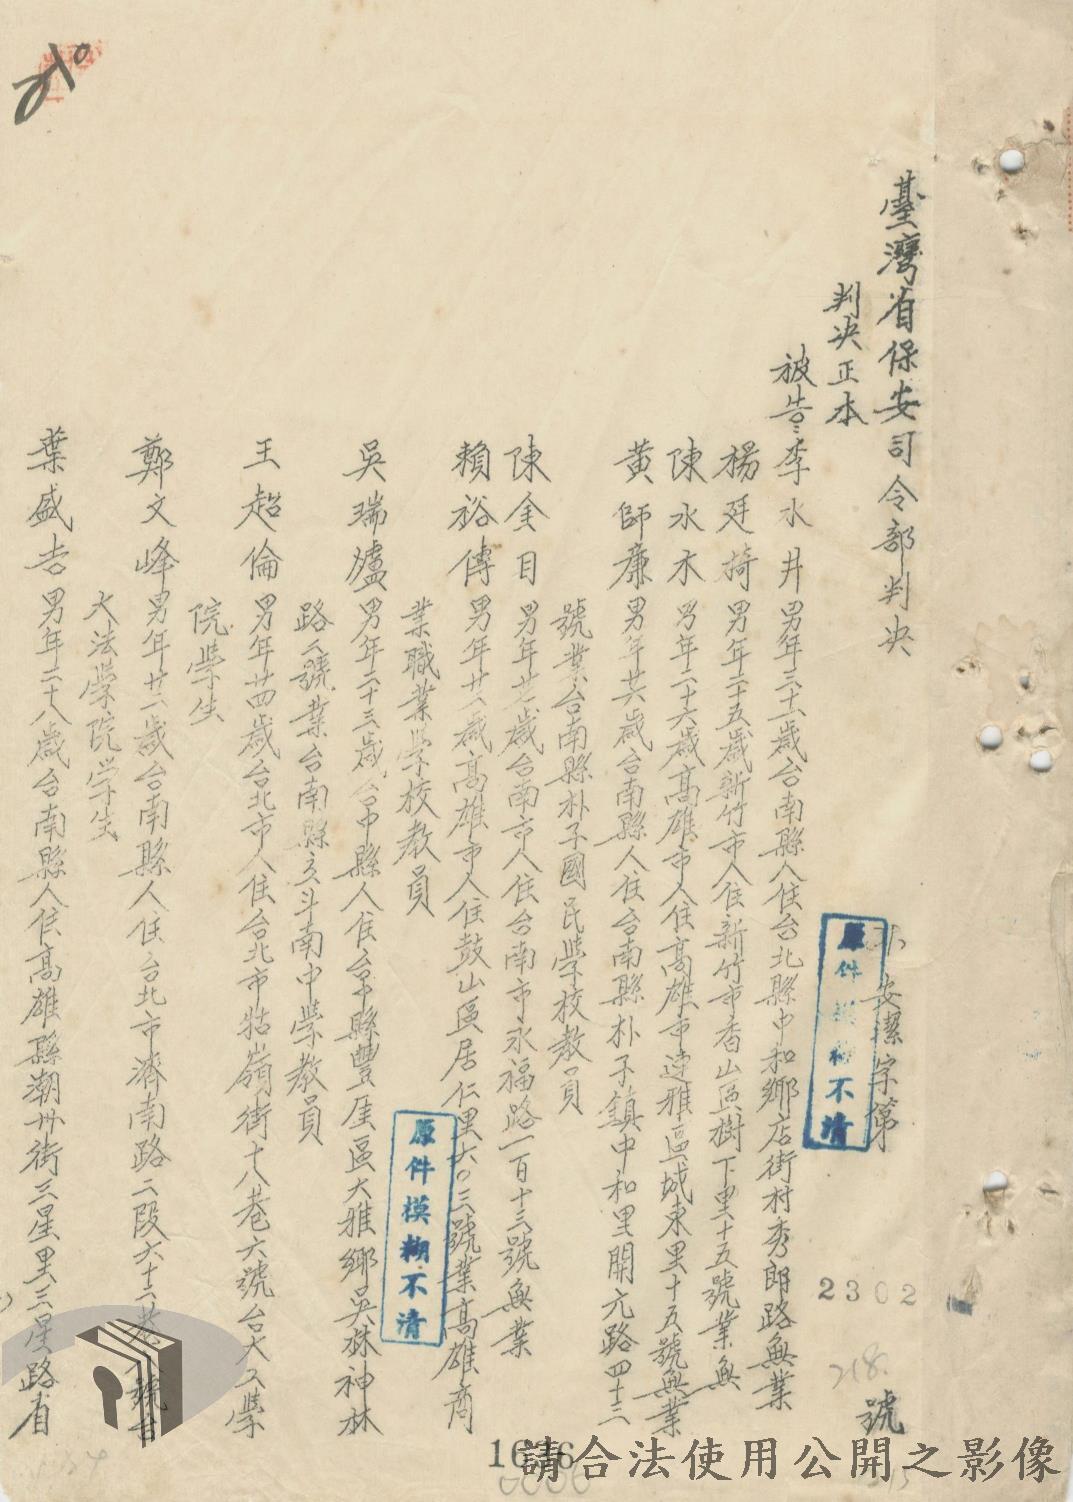 臺灣省保安司令部判决
安潔字第
2302
號
判决正本
被告：李水井 男年三十一歲台南縣人住台北縣中和鄉店街村秀朗路無業
楊廷椅 男年二十五歲新竹市人住新竹市香山區樹下里十五號業無
陳水木 男年二十六歲高雄市人住高雄市連雅區城東里十五號無業
黃師廉 男年廿六歲台南縣人住台南縣朴子鎮中和里開元路四十三
號業台南縣朴子國民學校教員
陳金目 男年廿歲台南市人住台南市永福路一百十三號無業
賴裕傳 男年廿歲高雄市人住鼓山區居仁里六〇三號業高雄商
業職業學校教員
吳瑞爐 男年二十三歲台中縣人住台中縣豐厓區大雅鄉吳株神林
路號業台南縣斗南中學教員
王超倫 男年廿四歲台北市人住台北市牯嶺街十八巷六號台大工學
院學生
鄭文峰 男年廿歲台南縣人住台北市濟南路二段六十巷號台
大法學院學生
葉盛吉 男年二十八歲台南縣人住高雄縣潮州街三星里三星路省
原件模糊不清
原件模糊不清
210
218
16
請合法使用公開之影像